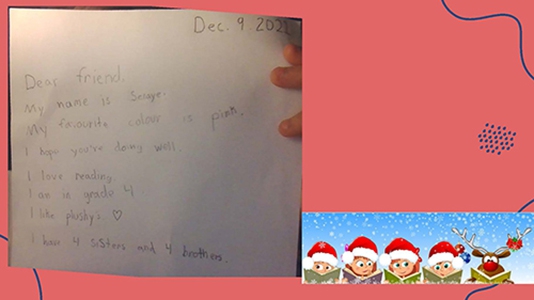 Dec. 9 2022
Dear friend,
My name is
My favourite colour is pink.
I hope you're doing well.
I love reading.
I am in grade 4
I like plushy's ♡
I have 4 sisters and 4 brothers.